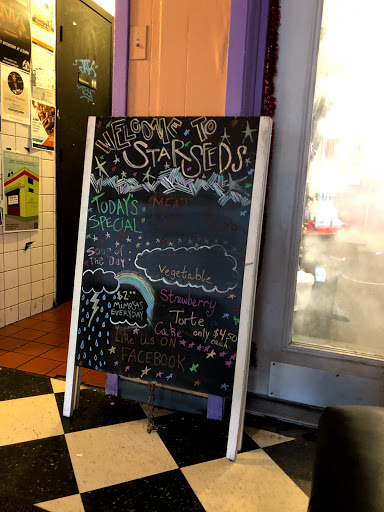 WELCOME TO
STARSEEDS
TODAYS
SPECIAL
MEAT
Soup of
The Day
Vegetable
$2.00
MIMOSAS
EVERYDAY!
Strawberry
Torte
Cake only $4.50
each
Like Us ON
FACEBOOK